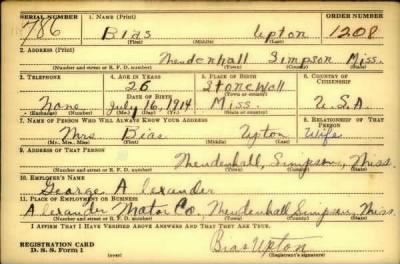 SERIAL NUMBER 1. NAME (Print) ORDER NUMBER
786 Bias Upton 1208
(First) (Middle) (Last)
2. ADDRESS (Print)
Mendenhall Simpson Miss.
(Number and street or R. F. D. number) (Town) (County) (State)
3. TELEPHONE 4. AGE IN YEARS 5. PLACE OF BIRTH 6. COUNTRY OF CITIZENSHIP
26 Stonewall
DATE OF BIRTH (Town or county)
None July 16, 1914 Miss. U.S.A.
(Exchange) (Number) (Mo.) (Day) (Yr.) (State or country)
7. NAME OF PERSON WHO WILL ALWAYS KNOW YOUR ADDRESS 8. RELATIONSHIP OF THAT PERSON
Mrs. Bias Upton Wife
(Mr., Mrs., Miss) (First) (Middle) (Last)
9. ADDRESS OF THAT PERSON
Mendenhall, Simpson, Miss.
(Number and street or R. F. D. number) (Town) (County) (State)
10. EMPLOYER'S NAME
George Alexander
11. PLACE OF EMPLOYMENT OR BUSINESS
Alexander Motor Co., Mendenhall, Simpson, Miss.
(Number and street or R. F. D. number) (Town) (County) (State)
I AFFIRM THAT I HAVE VERIFIED ABOVE ANSWERS AND THAT THEY ARE TRUE.
REGISTRATION CARD Bias Upton
D. S. S. Form 1 (over) (Registrant's signature)